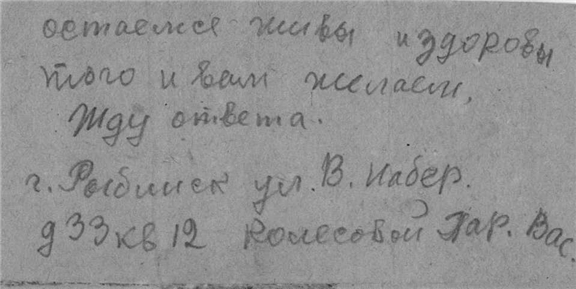 остаемся живы и здоровы
того и вам желаем,
Жду ответа.
г. Рыбинск ул. В. Набер.
д 33 кв 12 Колесовой Хар. Вас.